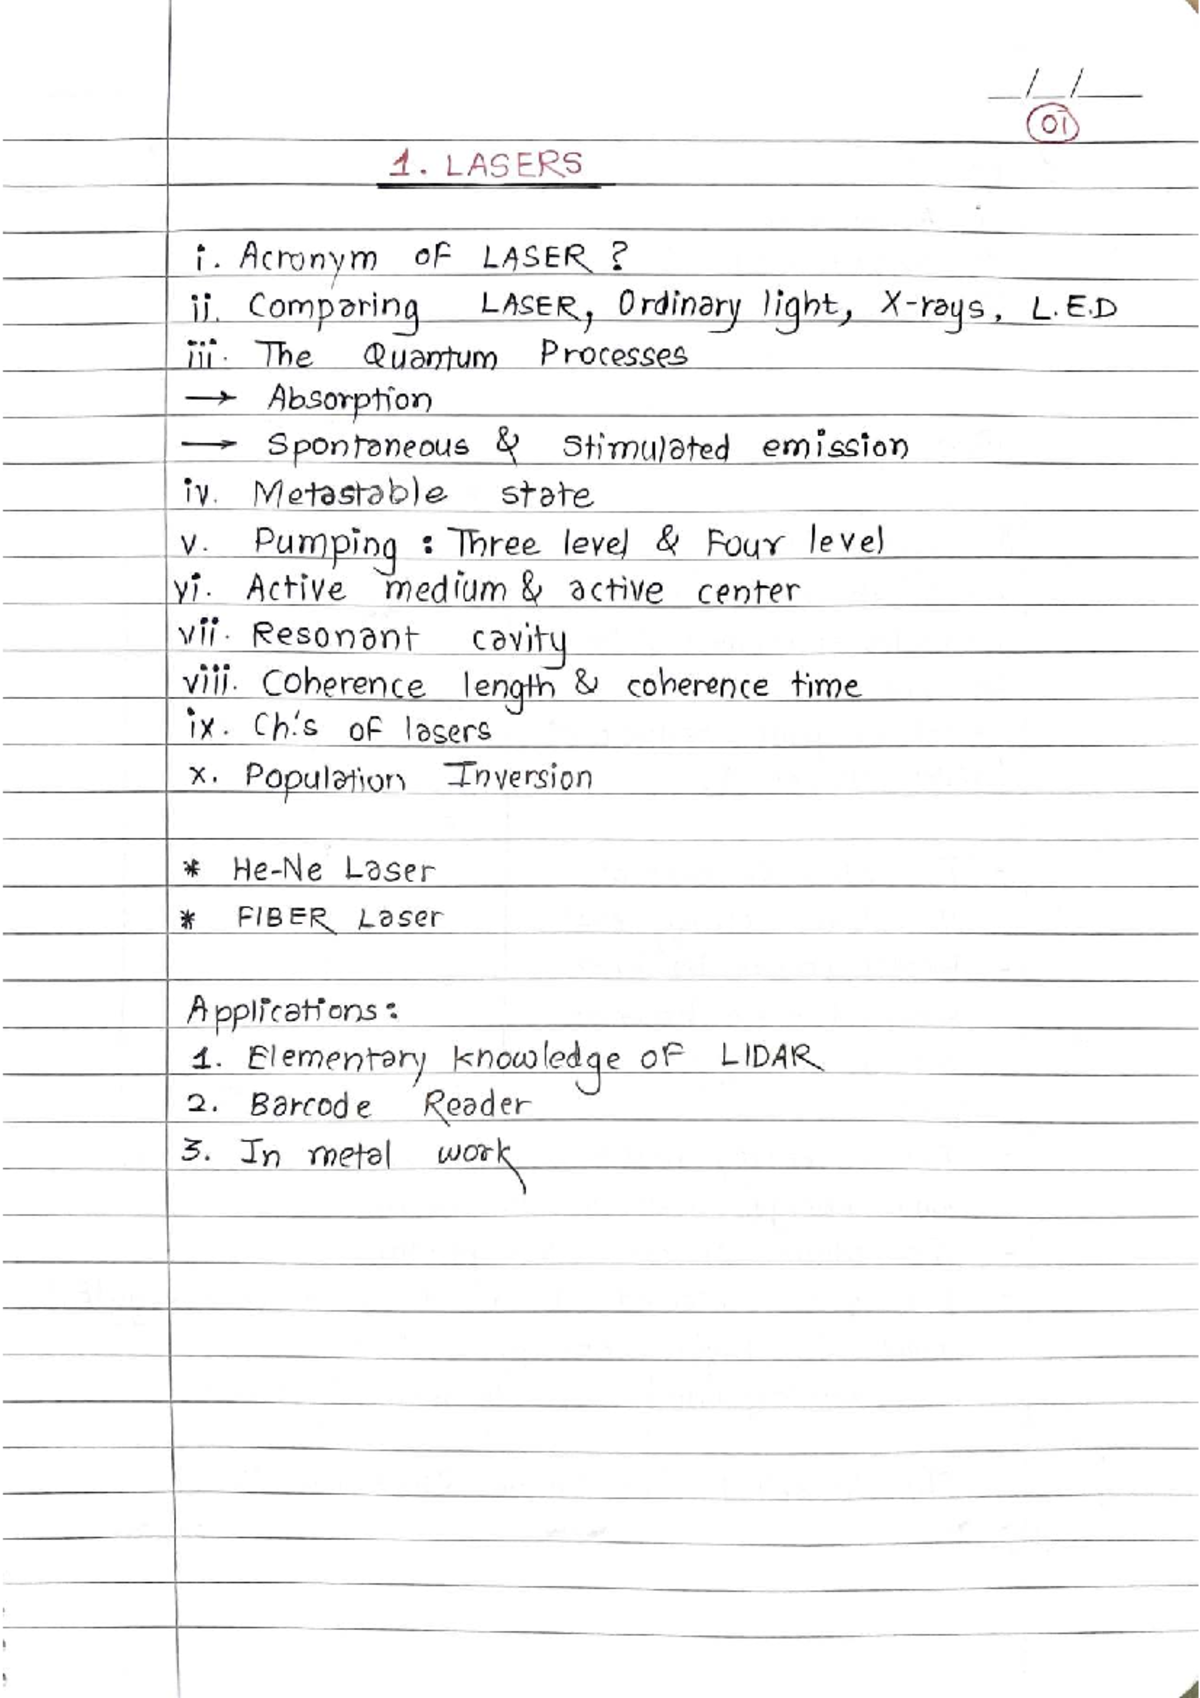 __/__/____
01
1. LASERS
i. Acronym of LASER ?
ii. Comparing LASER, Ordinary light, X-rays, L.E.D
iii. The Quantum Processes
→ Absorption
→ Spontaneous & Stimulated emission
iv. Metastable state
v. Pumping : Three level & Four level
vi. Active medium & active center
vii. Resonant cavity
viii. Coherence length & coherence time
ix. Ch.'s of lasers
x. Population Inversion
* He-Ne Laser
* FIBER Laser
Applications:
1. Elementary knowledge of LIDAR
2. Barcode Reader
3. In metal work